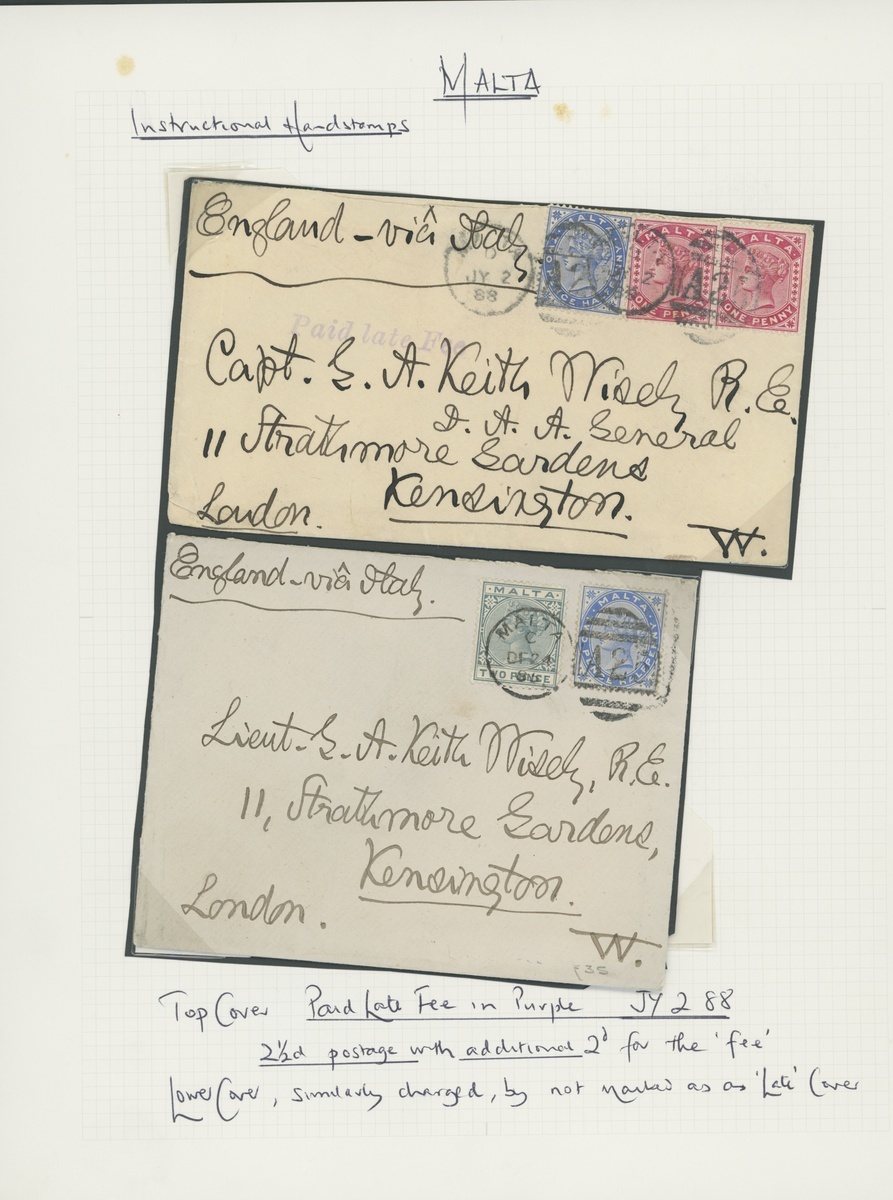 MALTA
Instructional Handstamps
England - viâ Italy
MALTA
JY 2
88
MALTA
MALTA
MALTA
ONE PENNY
ONE PENNY
A 25
Paid late Fee
Capt. G. A. Keith Wisely R.E.
D. A. A. General
11 Strathmore Gardens
Kensington.
London.
W.
England - viâ Italy.
MALTA
MALTA
TWO PENCE
MALTA
C
DE 24
A 25
Lieut. G. A. Keith Wisely, R.E.
11, Strathmore Gardens,
Kensington.
London.
W.
£35
Top Cover Paid Late Fee in Purple JY 2 88
2½d postage with additional 2d for the 'fee'
Lower Cover, similarly charged, by not marked as as 'Late' Cover